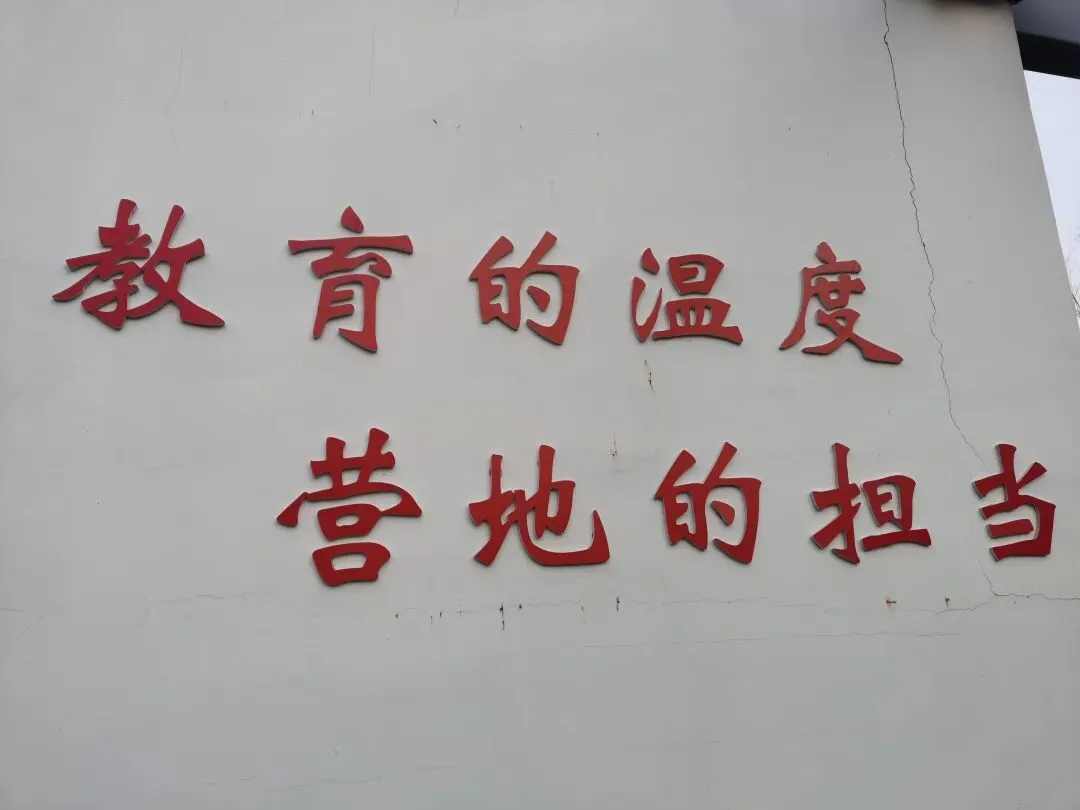 教育的温度
营地的担当